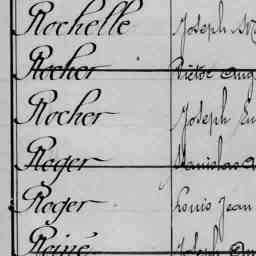 Rochelle Joseph
Rocher Victor Aug
Rocher Joseph Eu
Roger Stanislas A
Roger Louis Jean
Roiné Joseph